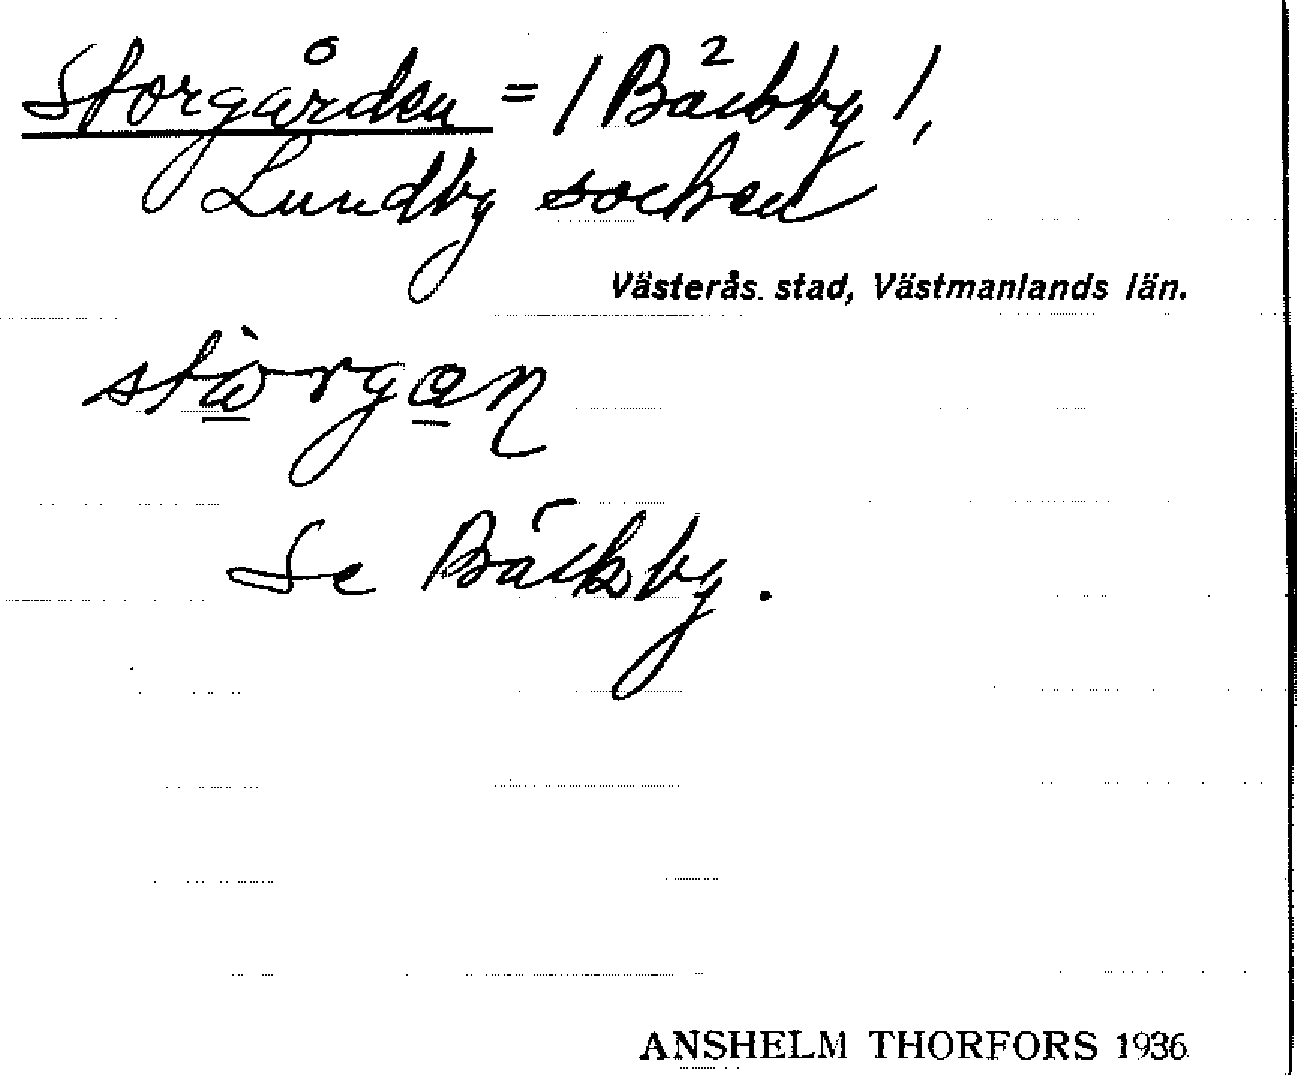 Storgården = / Bäckby /,
Lundby socken
Västerås stad, Västmanlands län.
stàrgan
Se Bäckby.
ANSHELM THORFORS 1936